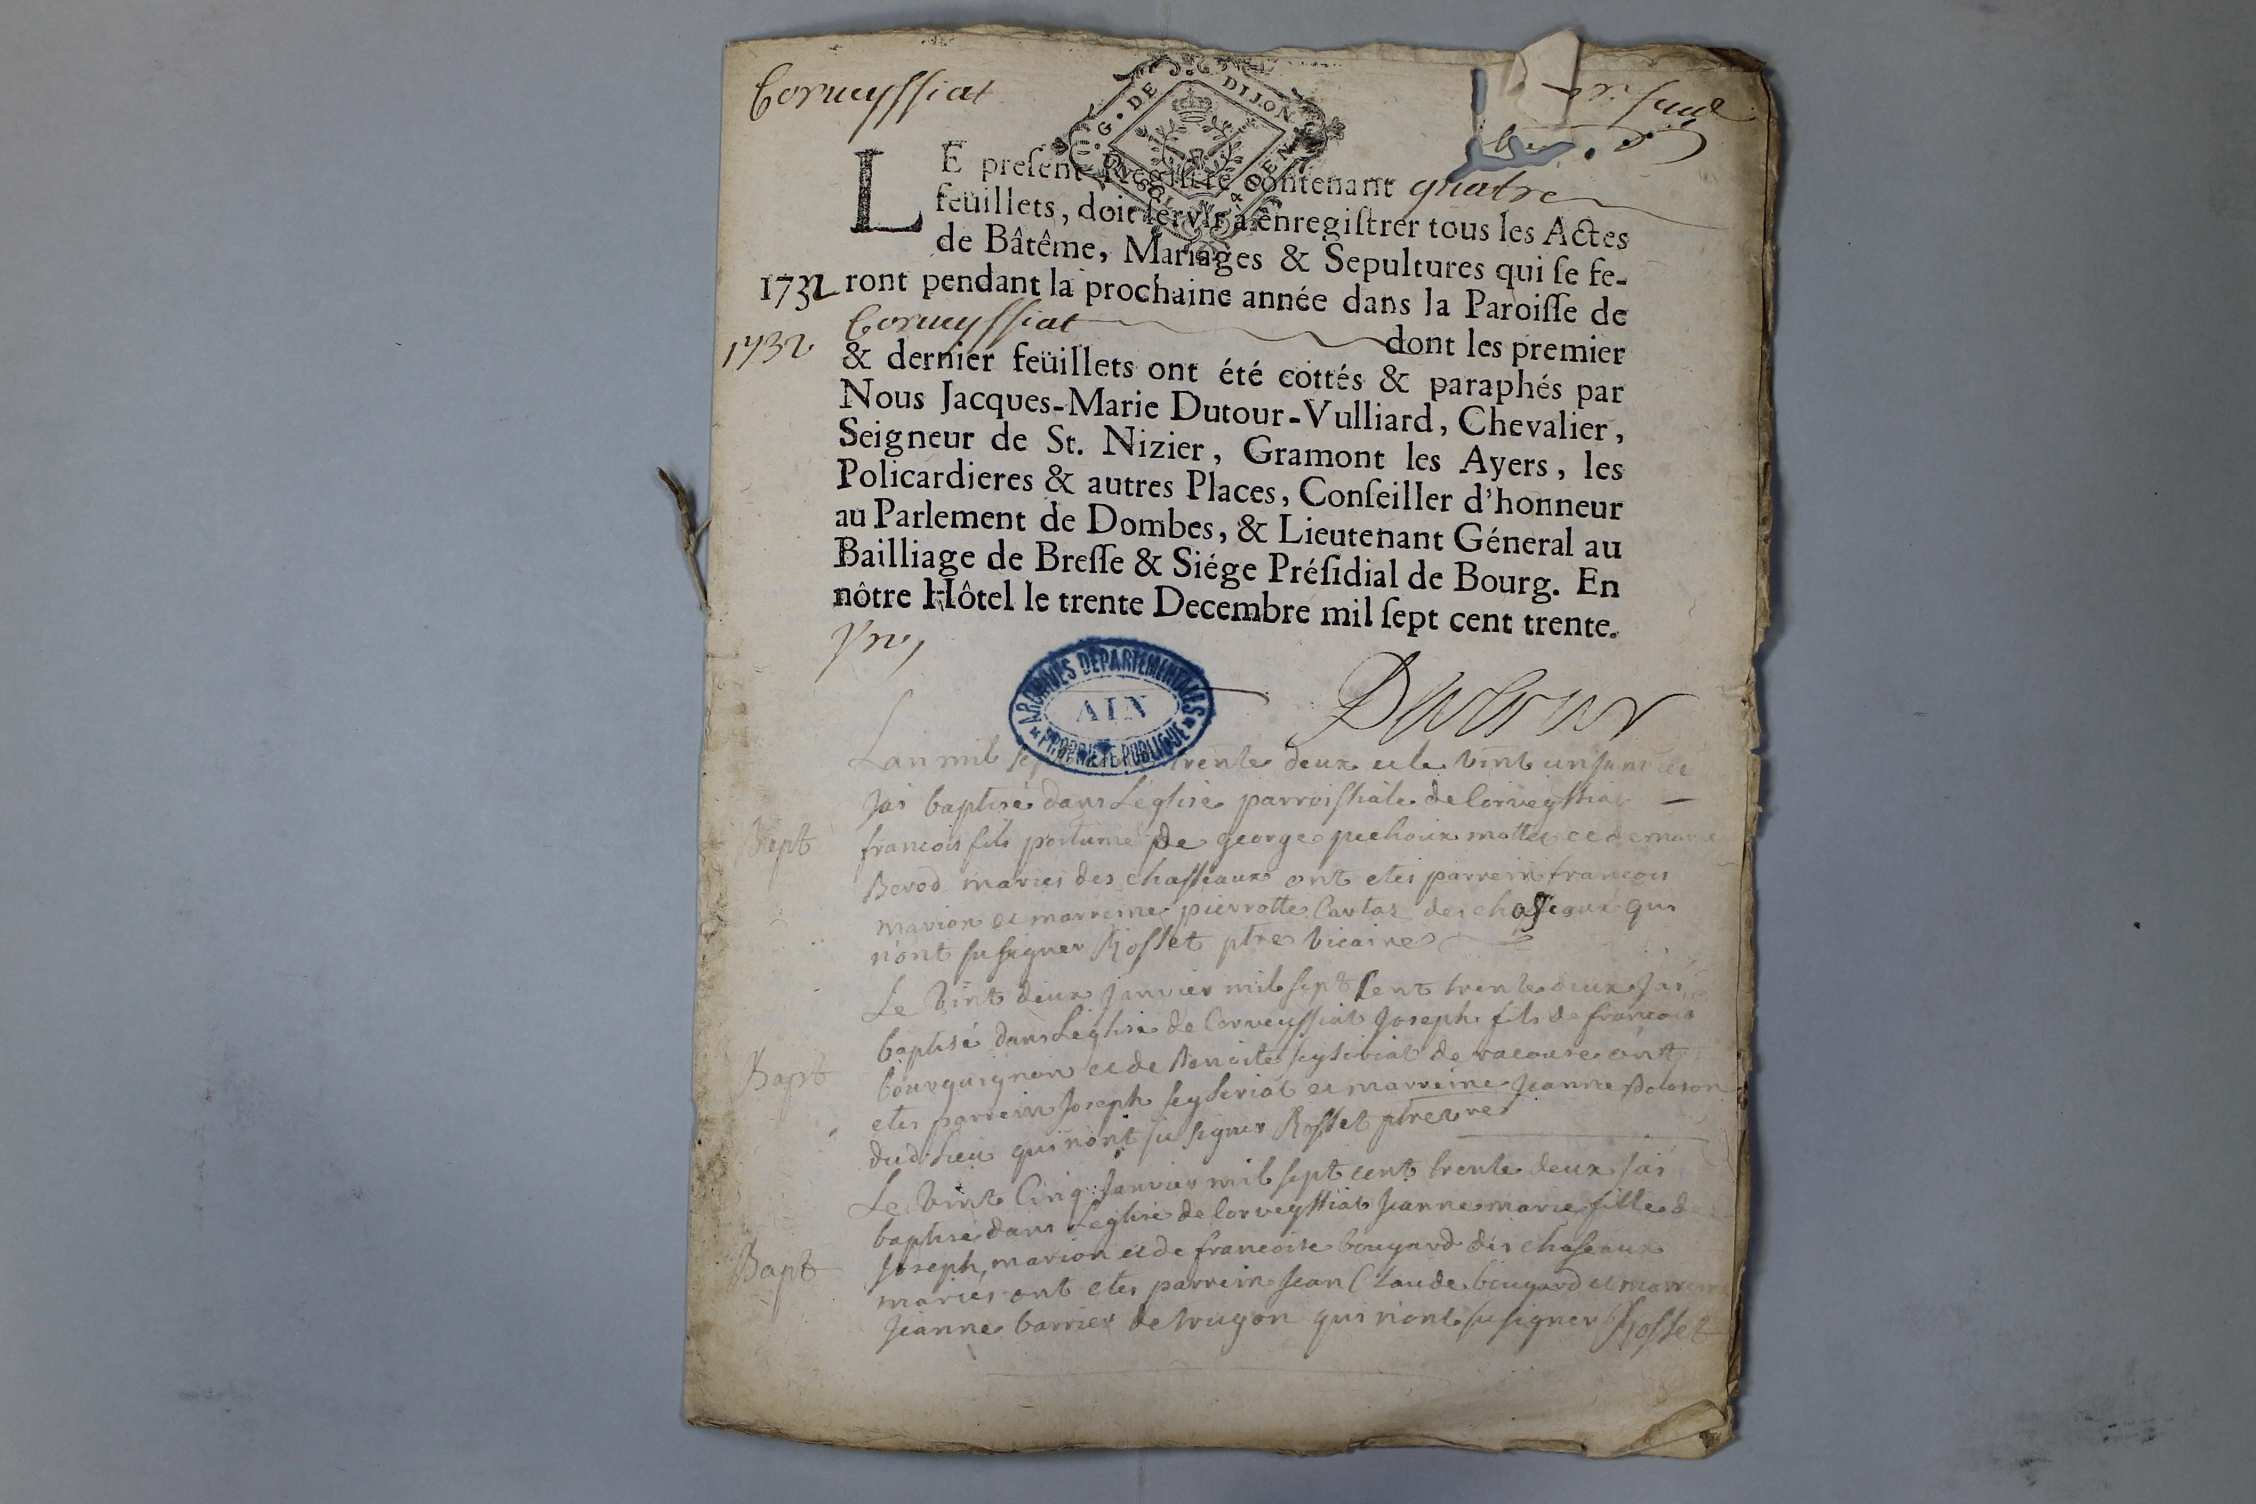 Corveyssiat
G. DE DIJON
LE preſent Regiſtre contenant quatre
feüillets, doit ſervir à enregiſtrer tous les Actes
de Bâtême, Mariages & Sepultures qui ſe fe-
1732 ront pendant la prochaine année dans la Paroiſſe de
1732 Corveyssiat dont les premier
& dernier feüillets ont été cottés & paraphés par
Nous Jacques-Marie Dutour-Vulliard, Chevalier,
Seigneur de St. Nizier, Gramont les Ayers, les
Policardieres & autres Places, Conſeiller d'honneur
au Parlement de Dombes, & Lieutenant Géneral au
Bailliage de Breſſe & Siége Préſidial de Bourg. En
nôtre Hôtel le trente Decembre mil ſept cent trente.
Dutour
ARCHIVES DEPARTEMENTALES
AIN
PROPRIETE PUBLIQUE
Lan mil trente deux et le vint un
Jai baptisé dans Léglise parroissiale de Corveyssiat
Bapt francois fils postume de george pechoux et de marie
Berod maries des chasseaux ont etes parrein francois
marion et marreine pierrotte Cartaz des chasseaux qui
n'ont su signer Rosset ptre vicaire
Le Vint deux Janvier mil sept Cent trente deux Jai
baptisé dans Léglise de Corveyssiat Joseph fils de françois
Bapt bourguignon et de Benoite seyseriat de racouse ont
etes parrein Joseph seyseriat et marreine Jeanne
dud. Lieu qui n'ont su signer Rosset ptre
Le Vint Cinq Janvier mil sept cent trente deux Jai
baptisé dans Léglise de Corveyssiat Jeanne marie fille de
Bapt Joseph marion et de francoise bougard des chaseaux
maries ont etes parrein Jean Claude bougard et marreine
Jeanne barrier de qui n'ont su signer Rosset